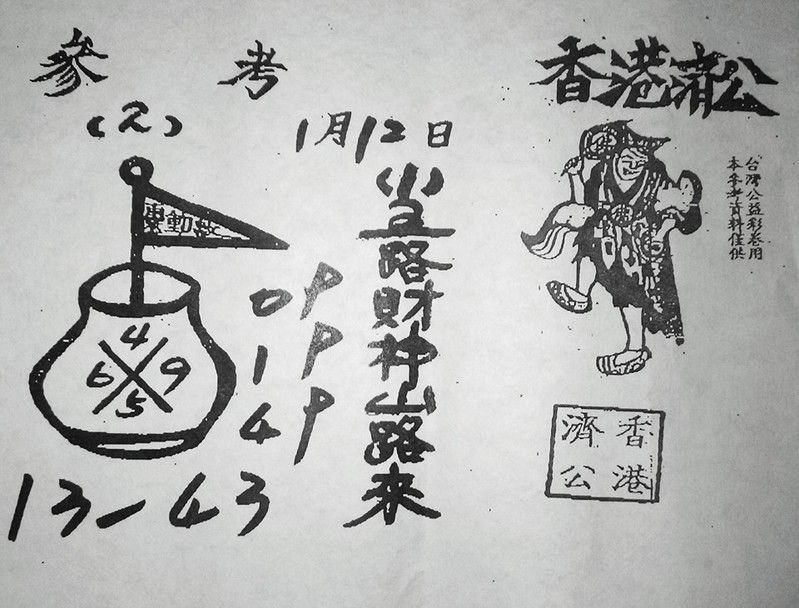 參考
香港濟公
(2)
1月12日
本參考資料僅供
台灣公益彩卷用
五路財神山路來
4
6 9
5
09
19
49
13-43
香港
濟公